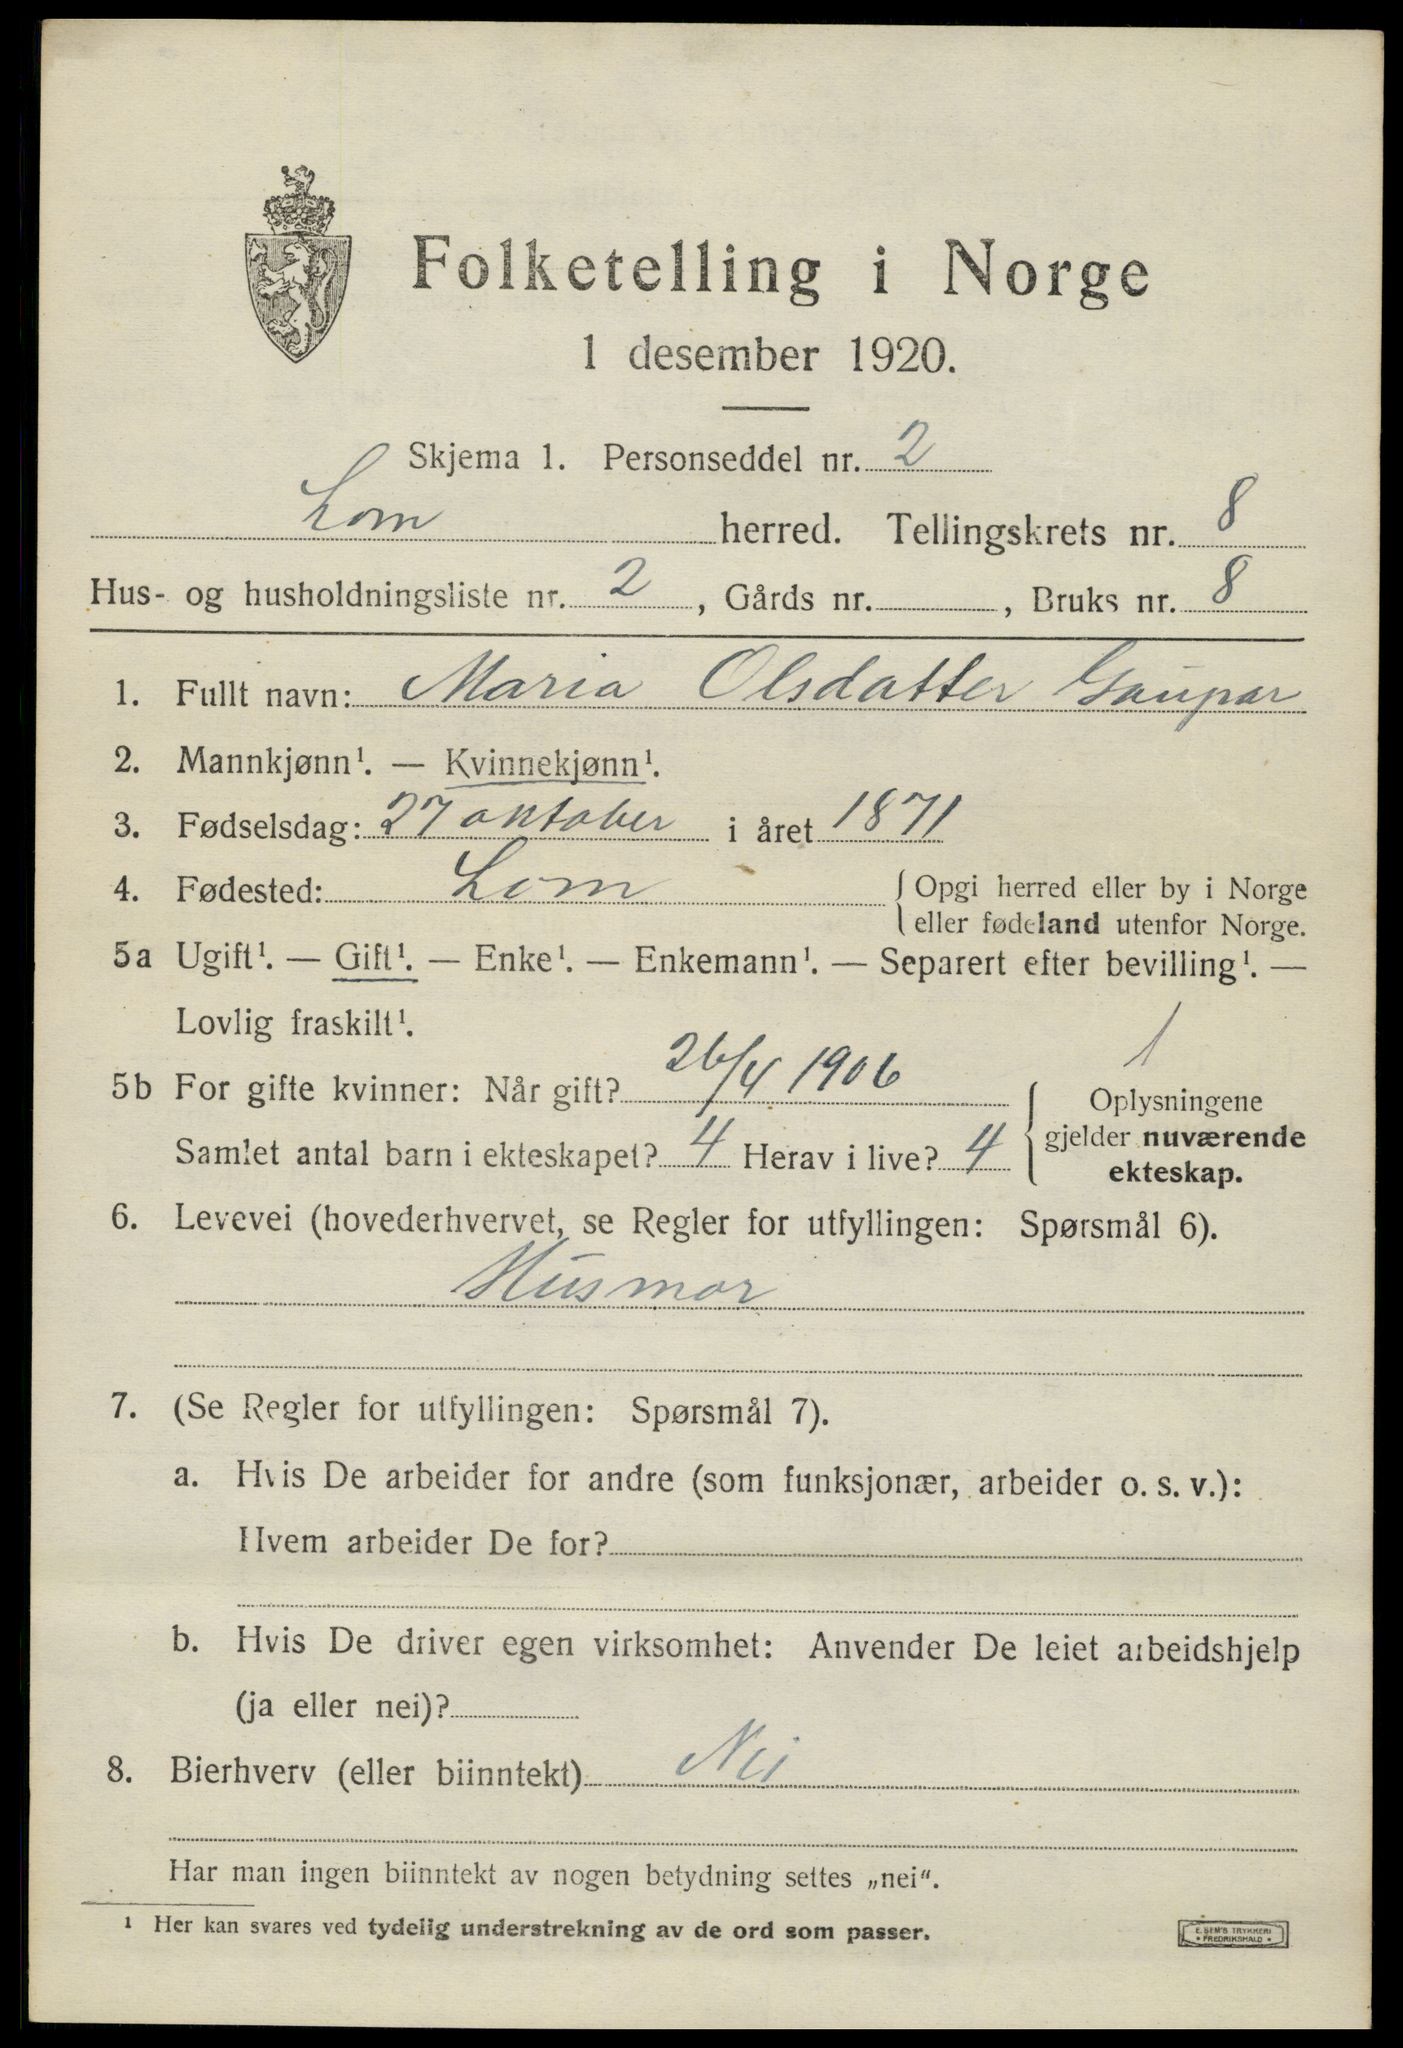 Folketelling i Norge
1 desember 1920.
Skjema 1. Personseddel nr. 2
Lom herred. Tellingskrets nr. 8
Hus- og husholdningsliste nr. 2, Gårds nr. , Bruks nr. 8
1. Fullt navn: Maria Olsdatter Gaupar
2. Mannkjønn¹. — Kvinnekjønn¹.
3. Fødselsdag: 27 oktober i året 1871
4. Fødested: Lom { Opgi herred eller by i Norge
eller fødeland utenfor Norge.
5a Ugift¹. — Gift¹. — Enke¹. — Enkemann¹. — Separert efter bevilling¹. —
Lovlig fraskilt¹.
1
5b For gifte kvinner: Når gift? 26/4 1906
Samlet antal barn i ekteskapet? 4 Herav i live? 4
{ Oplysningene
gjelder nuværende
ekteskap.
6. Levevei (hovederhvervet, se Regler for utfyllingen: Spørsmål 6).
Husmor
7. (Se Regler for utfyllingen: Spørsmål 7).
a. Hvis De arbeider for andre (som funksjonær, arbeider o. s. v.):
Hvem arbeider De for?
b. Hvis De driver egen virksomhet: Anvender De leiet arbeidshjelp
(ja eller nei)?
8. Bierhverv (eller biinntekt) Nei
Har man ingen biinntekt av nogen betydning settes „nei“.
¹ Her kan svares ved tydelig understrekning av de ord som passer.
E. SEM'S TRYKKERI
* FREDRIKSHALD *